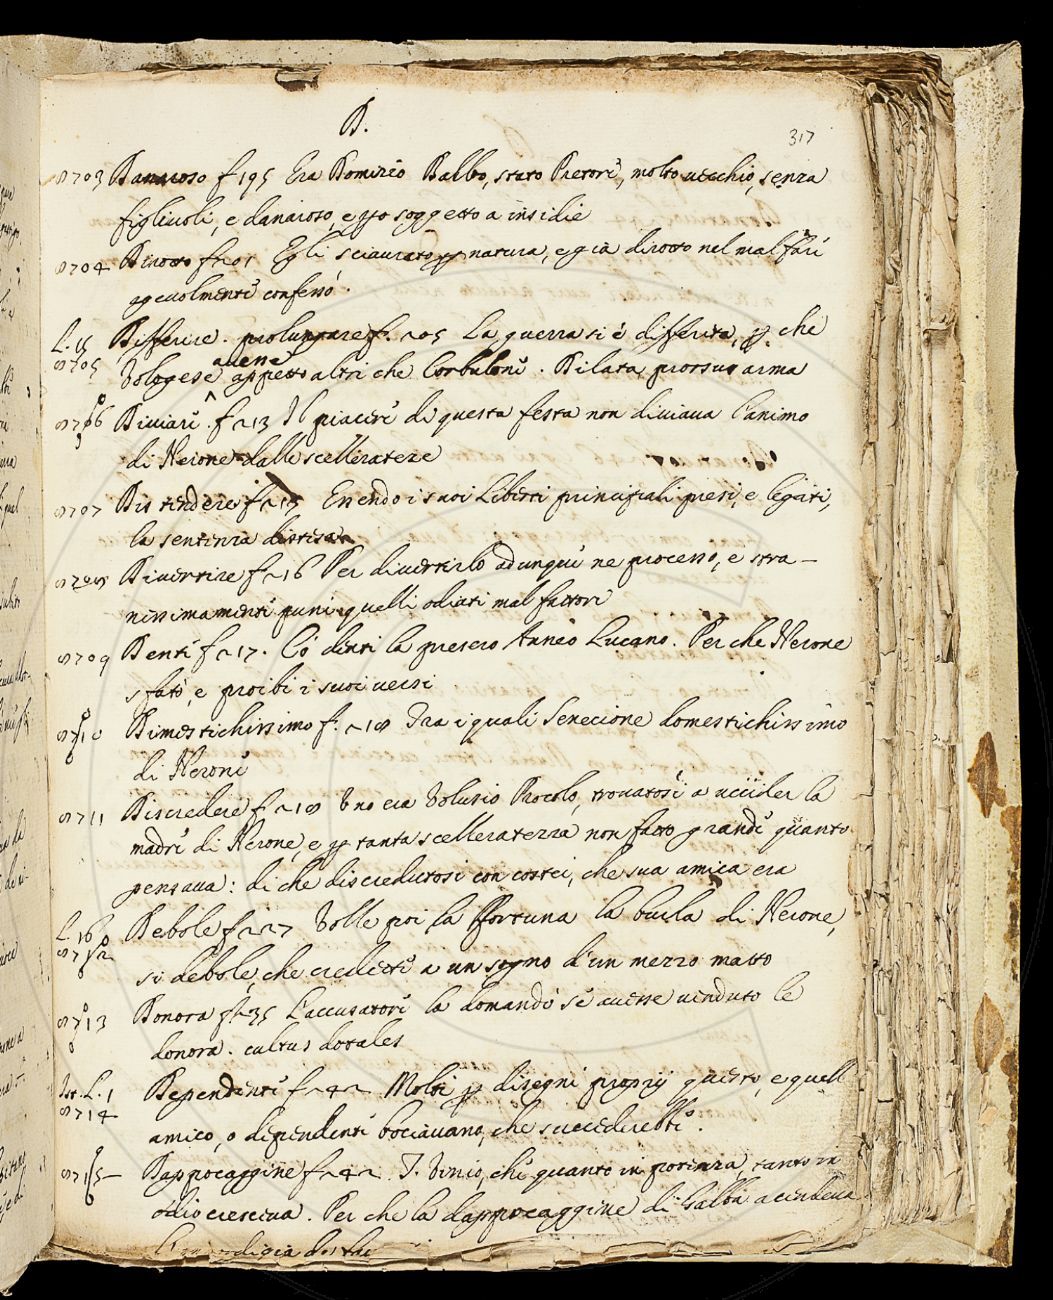 D.
317
8703 Danaioso f 195 Era Domizio Balbo, stato Pretore, molto vecchio, senza
figliuoli, e danaioso, e pto soggetto a insidie
8704 Dirotto f 201 Egli sciaurato p natura, e già dirotto nel mal fare
agevolmente confessò.
L. 15 Differire. prolungare f. 205 La guerra si è differita, p che
8705 Vologese avene appetto altri che Corbuloni. Dilata prorsus arma
8706 Diviare. f 213 Il piacere di questa festa non diviava l'animo
di Nerone dalle scelleratezze
8707 Distendere f 215 Essendo i suoi Liberti principali presi, e legati,
la sentenzia distesa
8708 Divertire f 216 Per divertirlo adunque ne processò, e stra-
nissimamente punì quelli odiati malfattori
8709 Denti f 217. Co' denti la presero Anneo Lucano. Per che Nerone
sfatò, e proibì i suoi versi
8710 Dimestichissimo f. 218 Tra i quali Senecione domestichissimo
di Nerone
8711 Discredere f 218 Uno era Volusio Procolo, trovatosi a uccider la
madre di Nerone, e p tanta scelleratezza non fatto grande quanto
pensava: di che discredutosi con costei, che sua amica era
L. 16 Debole f 227 Volle poi la Fortuna la burla di Nerone,
8712 sì debole, che credette a un sogno d'un mezzo matto
8713 Donora f 235 L'accusatore la domandò se avesse venduto le
donora. cultus dotales
Ist. L. 1 Dependente f 242 Molti p disegni proprij questo, e quell
8714 amico, o dipendente bociavano, che succederebbe.
8715 Dappocaggine f 242 T. Vinio, che quanto in potenza, tanto in
odio cresceva. Per che la dappocaggine di Galba accendeva